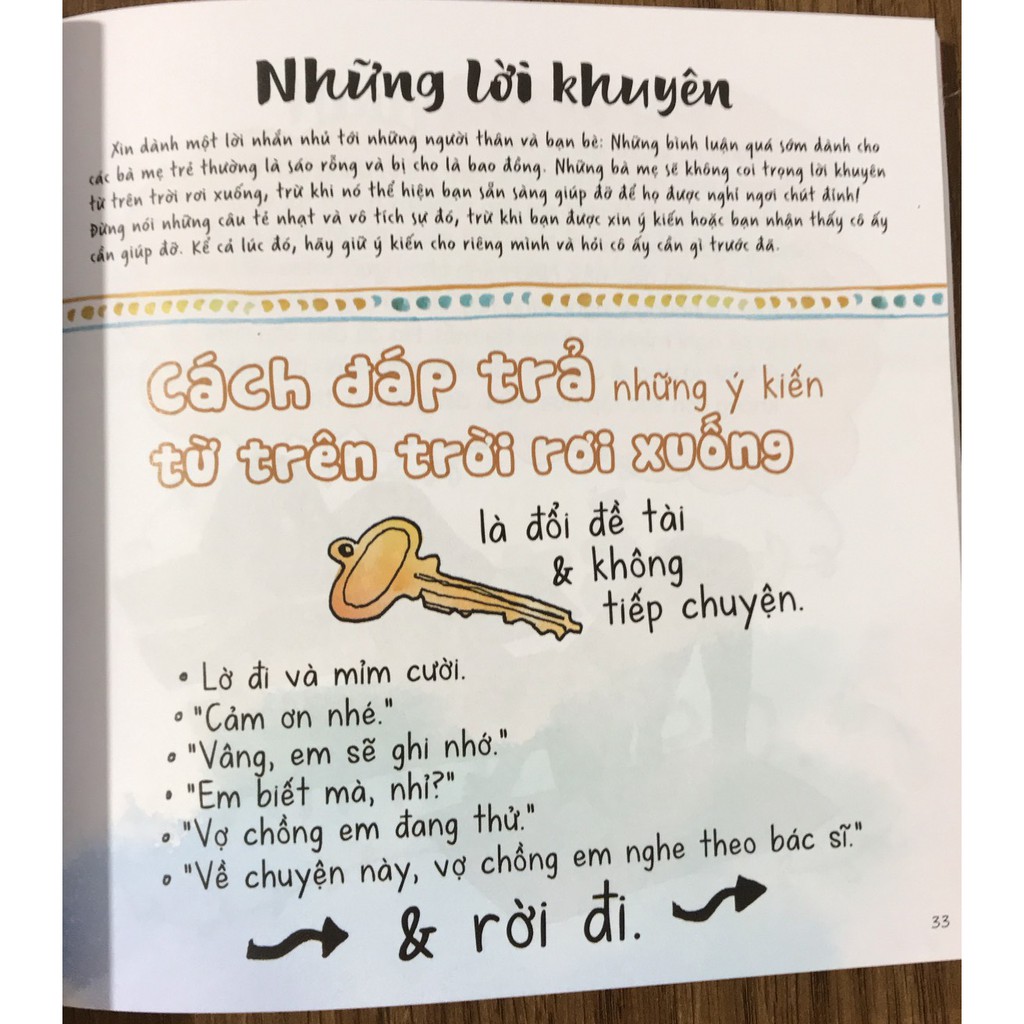 Những lời khuyên
Xin dành một lời nhắn nhủ tới những người thân và bạn bè: Những bình luận quá sớm dành cho
các bà mẹ trẻ thường là sáo rỗng và bị cho là bao đồng. Những bà mẹ sẽ không coi trọng lời khuyên
từ trên trời rơi xuống, trừ khi nó thể hiện bạn sẵn sàng giúp đỡ để họ được nghỉ ngơi chút đỉnh!
Đừng nói những câu tẻ nhạt và vô tích sự đó, trừ khi bạn được xin ý kiến hoặc bạn nhận thấy cô ấy
cần giúp đỡ. Kể cả lúc đó, hãy giữ ý kiến cho riêng mình và hỏi cô ấy cần gì trước đã.
Cách đáp trả những ý kiến
từ trên trời rơi xuống
là đổi đề tài
& không
tiếp chuyện.
• Lờ đi và mỉm cười.
• "Cảm ơn nhé."
• "Vâng, em sẽ ghi nhớ."
• "Em biết mà, nhỉ?"
• "Vợ chồng em đang thử."
• "Về chuyện này, vợ chồng em nghe theo bác sĩ."
& rời đi.
33